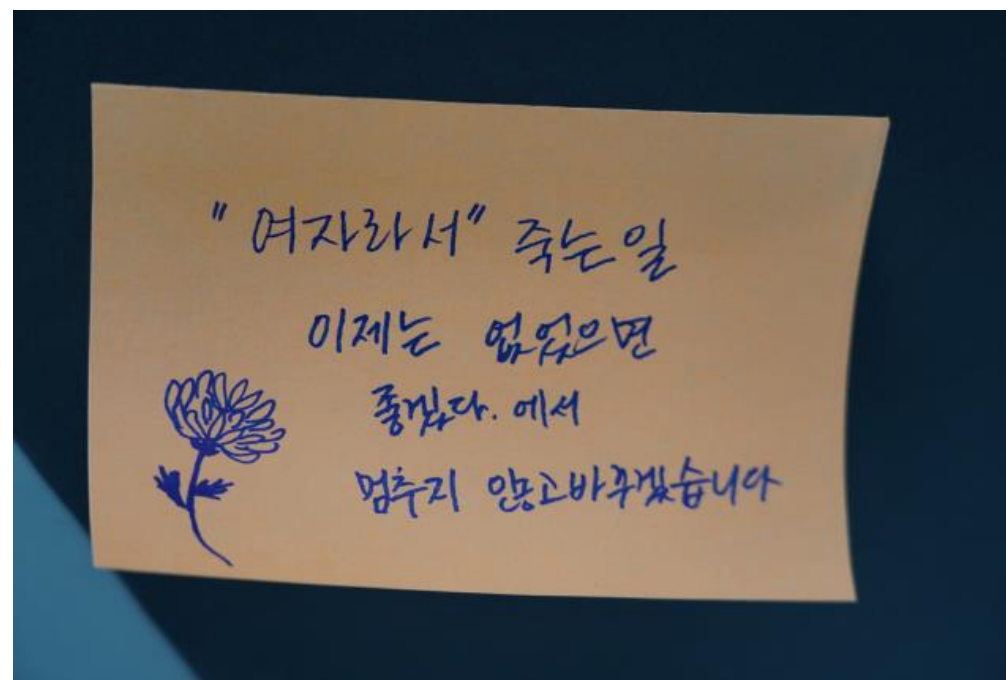 "여자라서" 죽는일
이제는 없었으면
좋겠다. 에서
멈추지 않고바꾸겠습니다